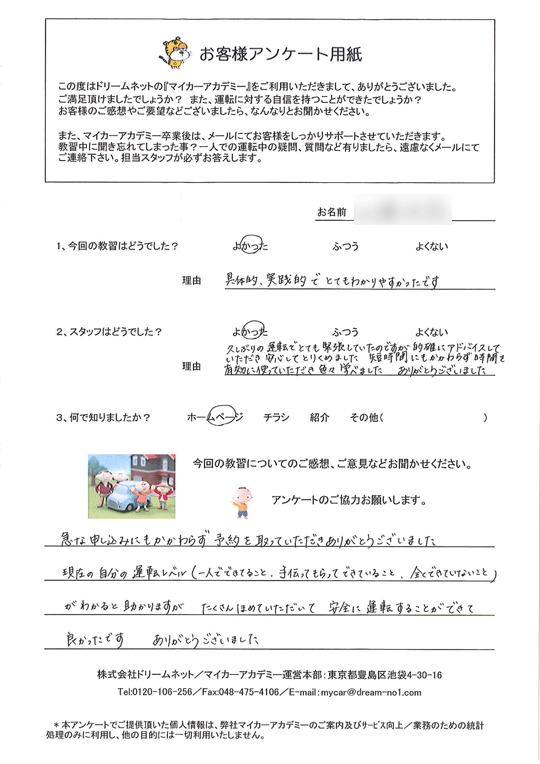 お客様アンケート用紙
この度はドリームネットの『マイカーアカデミー』をご利用いただきまして、ありがとうございました。
ご満足頂けましたでしょうか？ また、運転に対する自信を持つことができたでしょうか？
お客様のご感想やご要望などございましたら、なんなりとお聞かせください。
また、マイカーアカデミー卒業後は、メールにてお客様をしっかりサポートさせていただきます。
教習中に聞き忘れてしまった事？一人での運転中の疑問、質問など有りましたら、遠慮なくメールにて
ご連絡下さい。担当スタッフが必ずお答えします。
お名前
1、今回の教習はどうでした？ よかった ふつう よくない
理由 具体的、実践的で とてもわかりやすかったです
2、スタッフはどうでした？ よかった ふつう よくない
久しぶりの運転でとても緊張していたのですが 的確にアドバイスして
いただき 安心してとりくめました 短時間にもかかわらず 時間を
理由 有効に使っていただき 色々学べました ありがとうございました
3、何で知りましたか？ ホームページ チラシ 紹介 その他( )
今回の教習についてのご感想、ご意見などお聞かせください。
アンケートのご協力お願いします。
急な申し込みにもかかわらず 予約を取っていただきありがとうございました
現在の自分の運転レベル(一人でできてること、手伝ってもらってできていること、全くできていないこと)
がわかると助かりますが たくさんほめていただいて 安全に運転することができて
良かったです ありがとうございました
株式会社ドリームネット／マイカーアカデミー運営本部：東京都豊島区池袋4-30-16
Tel:0120-106-256／Fax:048-475-4106／E-mail:mycar@dream-no1.com
＊本アンケートでご提供頂いた個人情報は、弊社マイカーアカデミーのご案内及びサービス向上／業務のための統計
処理のみに利用し、他の目的には一切利用いたしません。